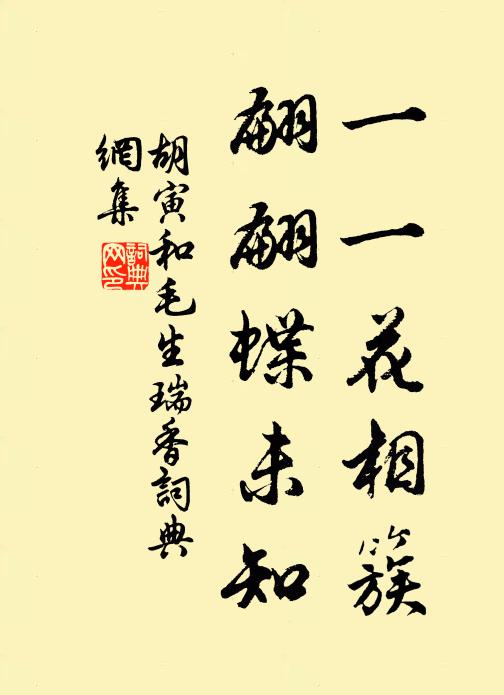 一一花相簇
翩翩蝶未知
胡寅和毛生瑞香詞典
網集
詞典網印